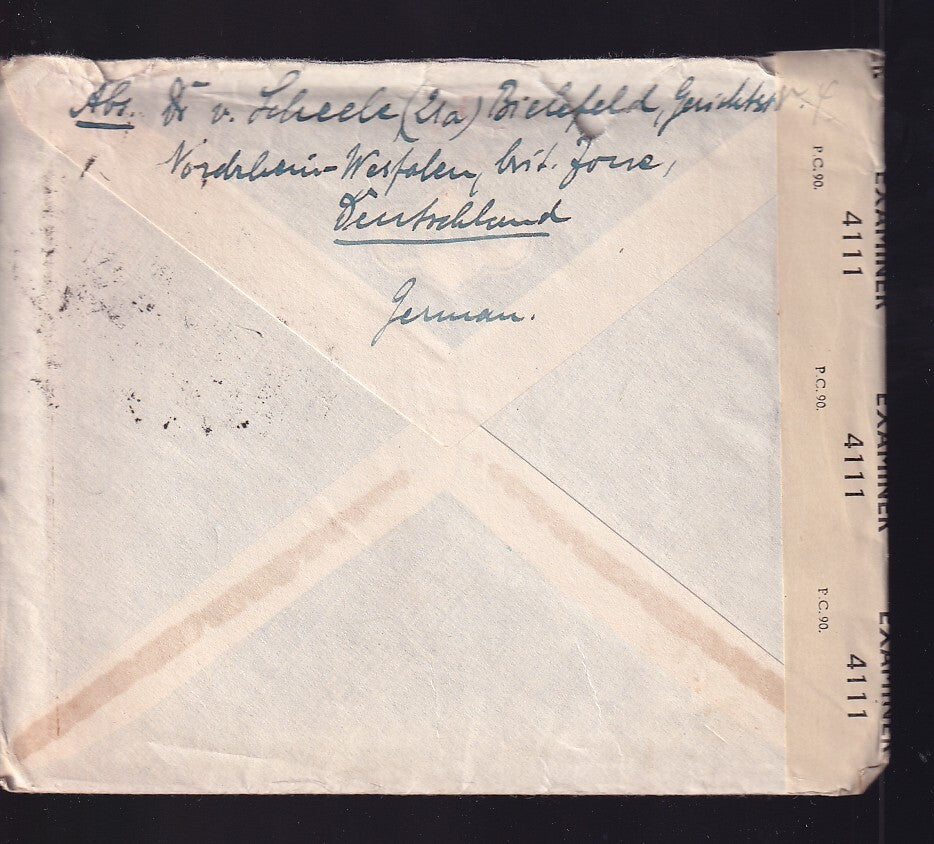 Abs. Dr v. Scheele (21a) Bielefeld, Gerichtsstr. 4
Nordrhein-Westfalen, brit. Zone,
Deutschland
German.
P.C. 90.
4111
EXAMINER
P.C. 90.
4111
EXAMINER
P.C. 90.
4111
EXAMINER